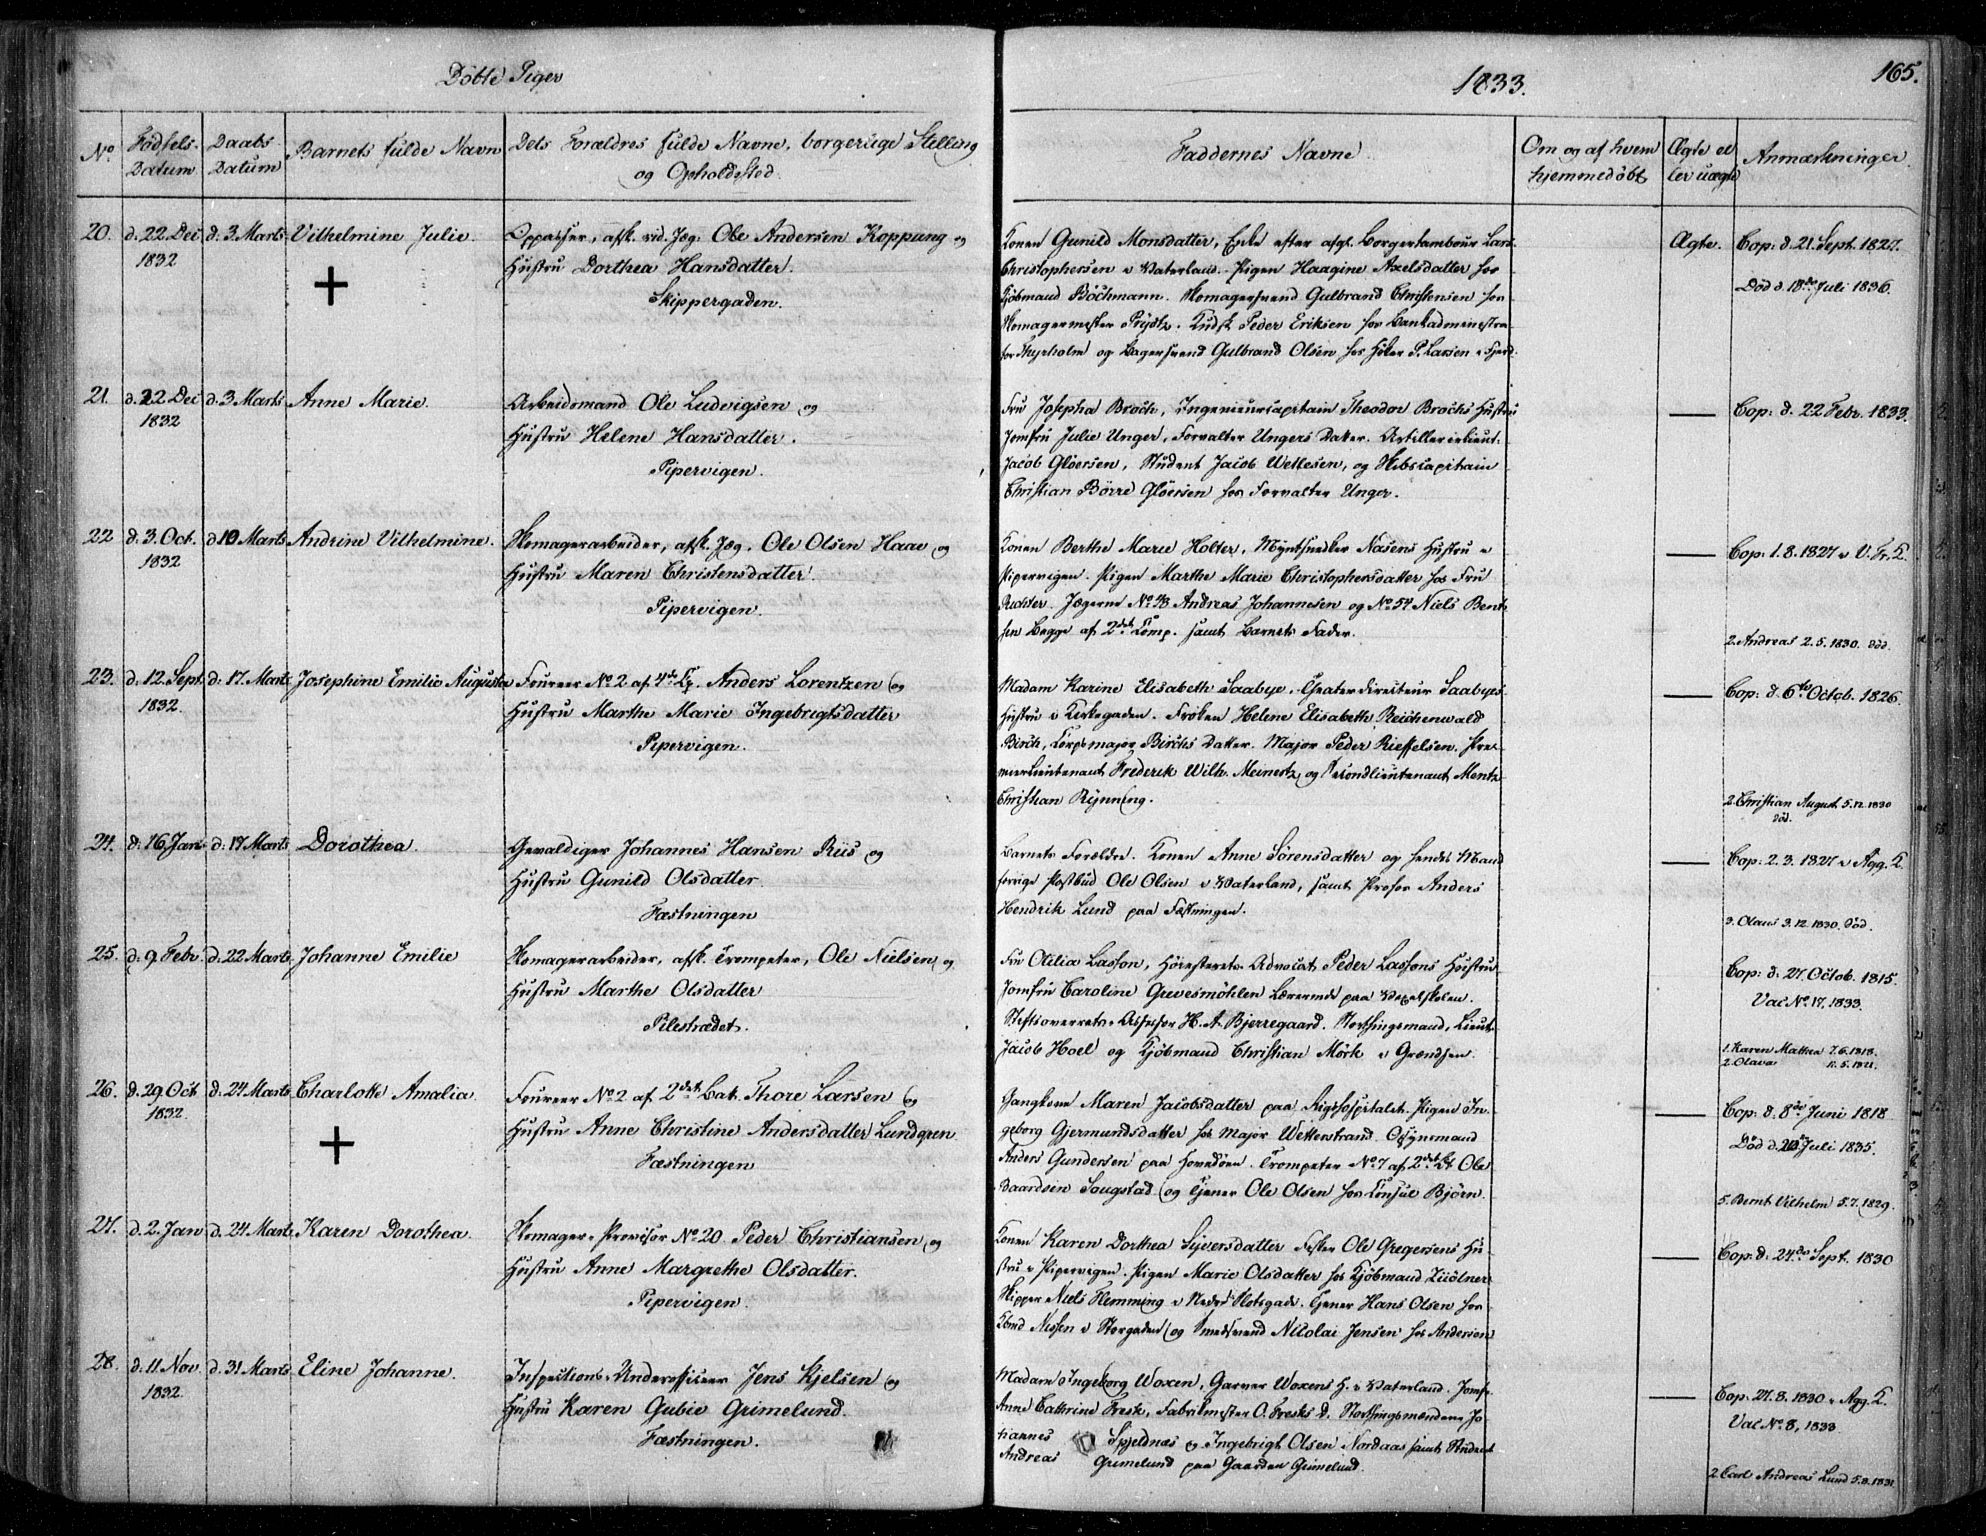 Døbte Piger
1833.
165.
No
Fødsels-
Datum
Daabs
Datum
Barnets fulde Navn
Dets Forældres fulde Navne, borgerlige Stilling
og Opholdssted.
Faddernes Navne.
Om og af hvem
hjemmedøbt
Ægte el
ler uægte
Anmærkninger.
20. d. 22 Dec d. 3 Marts Vilhelmine Julie.
1832
Oppasser, afsk. rid. Jæg. Ole Andersen Koppung og
Hustru Dorthea Hansdatter.
Skippergaden.
Konen Gunild Monsdatter, Enke efter afg. Borgertambour Lars
Christophersen i Vaterland. Pigen Haagine Axelsdatter hos
Kjøbmand Bochmann. Skomagersvend Gulbrand Christensen hos
Skomagermester Prydtz. Kudsk Peder Eriksen hos Bankadministra-
tor Thyrholm og Bagersvend Gulbrand Olsen hos Høker P. Larsen i Fjerd.
Ægte.
Cop: d. 21. Sept. 1827.
Død d. 18de Juli 1836.
21. d. 22 Dec d. 3 Marts Anne Marie.
1832
Arbeidsmand Ole Ludvigsen og
Hustru Helene Hansdatter.
Pipervigen.
Fru Josepha Broch, Ingenieurcapitain Theodor Brochs Hustru
Jomfru Julie Unger, Forvalter Ungers Datter. Artillerielieut.
Jacob Gløersen, Student Jacob Wetlesen, og Skibscapitain
Christian Børre Gløersen hos Forvalter Unger.
Cop: d. 22 Febr. 1833.
22 d. 3. Oct. d 10 Marts Andrine Vilhelmine.
1832
Skomagerarbeider, afsk. Jæg. Ole Olsen Haae og
Hustru Maren Christensdatter.
Pipervigen.
Konen Berthe Marie Holter, Myntsnedker Nasens Hustru i
Pipervigen. Pigen Marthe Marie Christophersdatter hos Fru
Richter. Jægerne No 43 Andreas Johannesen og No 54 Niels Bent-
sen begge af 2det Comp. samt Barnets Fader.
Cop: 1. 8. 1827 i V. Fr. K.
2. Andreas 2. 5. 1830. død.
23. d. 12. Sept. d. 17 Marts Josephine Emilie Augusta
1832.
Foureer No 2 af 4de Cp. Anders Lorentzen og
Hustru Marthe Marie Ingebrigtsdatter
Pipervigen.
Madam Karine Elisabeth Saabye, Theaterdirecteur Saabyes
Hustru i Kirkegaden. Frøken Helene Elisabeth Reichenwald
Birch, Corpsmajor Birchs Datter. Major Peder Rieffelsen. Pre-
mierlieutenant Frederik Wilh. Meinertz, og Secondlieutenant Mentz
Christian Rynning.
Cop: d. 6te Octob. 1826.
2. Christian August 5. 12. 1830
død.
24. d. 16. Jan. d. 17 Marts Dorothea.
Gevaldiger Johannes Hansen Riis og
Hustru Gunild Olsdatter
Fæstningen
Barnets Forældre. Konen Anne Sørensdatter og hendes Mand
forrige Postbud Ole Olsen i Vaterland, samt Profos Anders
Hendrik Lund paa Fæstningen.
Cop: 2. 3. 1827 i Agg. K.
3. Olaus 3. 12. 1830. død.
25. d. 9 Febr. d. 22 Marts Johanne Emilie
Skomagerarbeider, afsk. Trompeter, Ole Nielsen og
Hustru Marthe Olsdatter
Pilestrædet.
Fru Otilia Lasson, Høiesterets-Advocat Peder Lassons Hustru.
Jomfru Caroline Grevesmøhlen Lærerinde paa Vexelskolen.
Stiftsoverrets-Assessor H. A. Bjerregaard. Storthingsmand, Lieut.
Jacob Hoel og Kjøbmand Christian Mørk i Grændsen.
Cop: d. 27. Octob. 1815.
Vac No. 17. 1833.
1. Karen Mathea 7. 6. 1818.
2. Olava 11. 5. 1821.
26. d. 29. Oct d. 24 Marts Charlotte Amalia.
1832.
Foureer No 2 af 2det Bat. Thore Larsen og
Hustru Anne Christine Andersdatter Lundgren
Fæstningen
Gangkone Maren Jacobsdatter paa Rigshospitalet. Pigen In-
geborg Gjermundsdatter hos Major Wetterstrand. Opsynsmand
Anders Gundersen paa Hovedøen. Trompeter No 7 af 2det Bt. Ole
Baardsen Saugstad og Tjener Ole Olsen hos Consul Bjørn.
Cop: d. 8de Juni 1818.
Død d. Juli 1835.
5. Bernt Vilhelm 5. 7. 1829.
27. d. 2. Jan d. 24 Marts Karen Dorothea.
Skomager-Provisor No 20 Peder Christiansen, og
Hustru Anne Margrethe Olsdatter.
Pipervigen.
Konen Karen Dorthea Syversdatter Fisker Ole Gregersens Hu-
stru i Pipervigen. Pigen Marie Olsdatter hos Kjøbmand Züølner
Skipper Niels Flemming i Nedre Slotsgade. Tjener Hans Olsen hos
Kbmd Nissen i Storgaden og Smedsvend Nicolai Jensen hos Andersen
Cop: d. 24de Sept. 1830
28. d. 11 Nov. d. 31 Marts Eline Johanne.
1832.
Inspections-Underofficeer Jens Kjelsen og
Hustru Karen Gubie Grimelund.
Fæstningen.
Madam Ingeborg Woxen, Garver Woxens H. i Vaterland. Jomfr.
Anne Cathrine Fresk, Fabrikmester O. Fresks D. Storthingsmændene Jo-
hannes Spjeldnæs og Ingebrigt Olsen Nordaas samt Student
Andreas Grimelund paa Gaarden Grimelund.
Cop. 27. 8. 1830 i Agg. K.
Vac No. 8, 1833
2 Carl Andreas Lund 5. 8. 1831